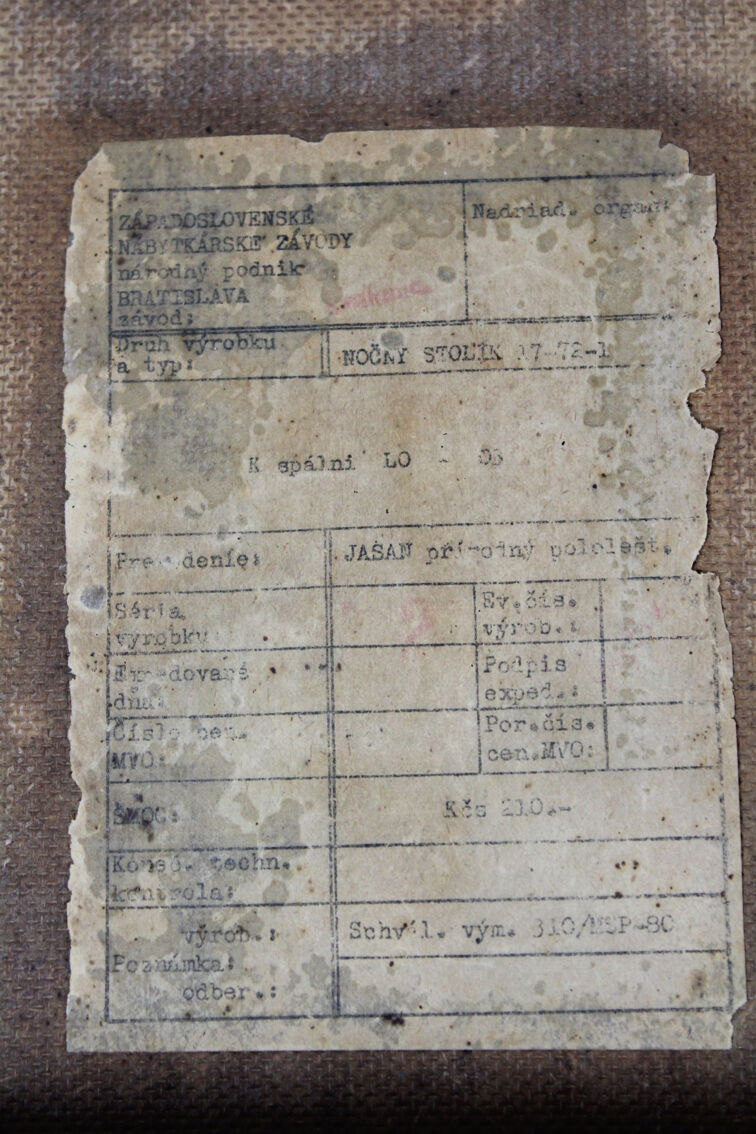 ZÁPADOSLOVENSKÉ
NÁBYTKÁRSKE ZÁVODY
národný podnik
BRATISLAVA
závod:
Nadriad. orgán:
Druh výrobku
a typ:
NOČNÝ STOLÍK 17-72-1
K spálni LO 05
Prevedenie:
JASAN prírodný pololešt.
Séria
výrobku
Ev.čís.
výrob.:
Expedované
dňa:
Podpis
exped.:
Číslo cen.
MVO:
Por.čís.
cen.MVO:
ŠMOC:
Kčs 210.-
techn.
kontrola:
výrob.:
Schvál. vým. 310/MSP-80
Poznámka:
odber.: